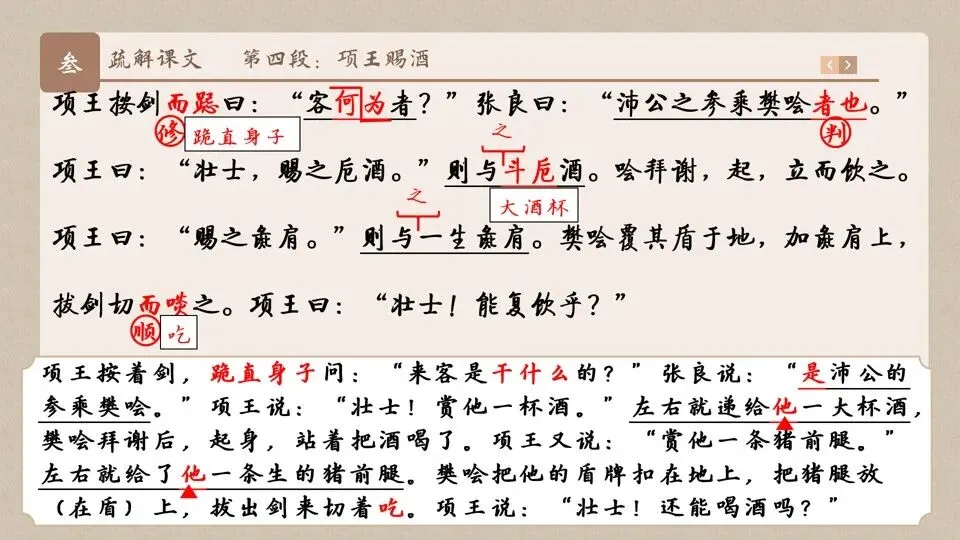 叁
疏解课文 第四段：项王赐酒
项王按剑而跽曰：“客何为者？”张良曰：“沛公之参乘樊哙者也。”
修 跪直身子 之 判
项王曰：“壮士，赐之卮酒。”则与斗卮酒。哙拜谢，起，立而饮之。
之 大酒杯
项王曰：“赐之彘肩。”则与一生彘肩。樊哙覆其盾于地，加彘肩上，
拔剑切而啖之。项王曰：“壮士！能复饮乎？”
顺 吃
项王按着剑，跪直身子问：“来客是干什么的？”张良说：“是沛公的
参乘樊哙。”项王说：“壮士！赏他一杯酒。”左右就递给他一大杯酒，
樊哙拜谢后，起身，站着把酒喝了。项王又说：“赏他一条猪前腿。”
左右就给了他一条生的猪前腿。樊哙把他的盾牌扣在地上，把猪腿放
（在盾）上，拔出剑来切着吃。项王说：“壮士！还能喝酒吗？”